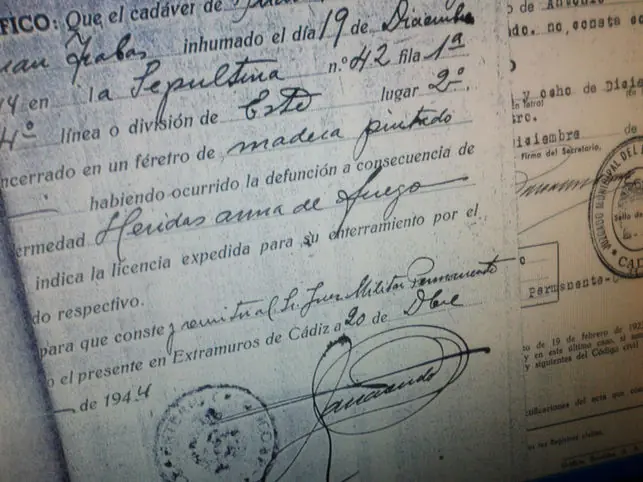 FICO: Que el cadáver de
inhumado el día 19 de Diciembre
en la Sepultura n.º 42 fila 1ª
4º línea o división de Este lugar 2º.
ncerrado en un féretro de madera pintado
habiendo ocurrido la defunción a consecuencia de
ermedad Heridas arma de fuego
indica la licencia expedida para su enterramiento por el
do respectivo.
para que conste y remitir al Sr. Juez Militar Permanente
o el presente en Extramuros de Cádiz a 20 de Dbre
de 1944
o de Antonio
do. no consta
y ocho de Dicie
ro.
iciembre de
Firma del Secretario,
JUZGADO MUNICIPAL DEL
Sello d
CAD
Permanente-
o de 19 de febrero de 192
y en este último caso, si
y siguientes del Código civil
tificaciones del acta que
los Registros civiles.